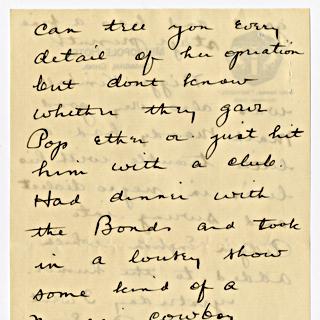 can tell you every
detail of her operation
but dont know
whether they gave
Pop ether or just hit
him with a club.
Had dinner with
the Bonds and took
in a lousey show
some kind of a
cowboy